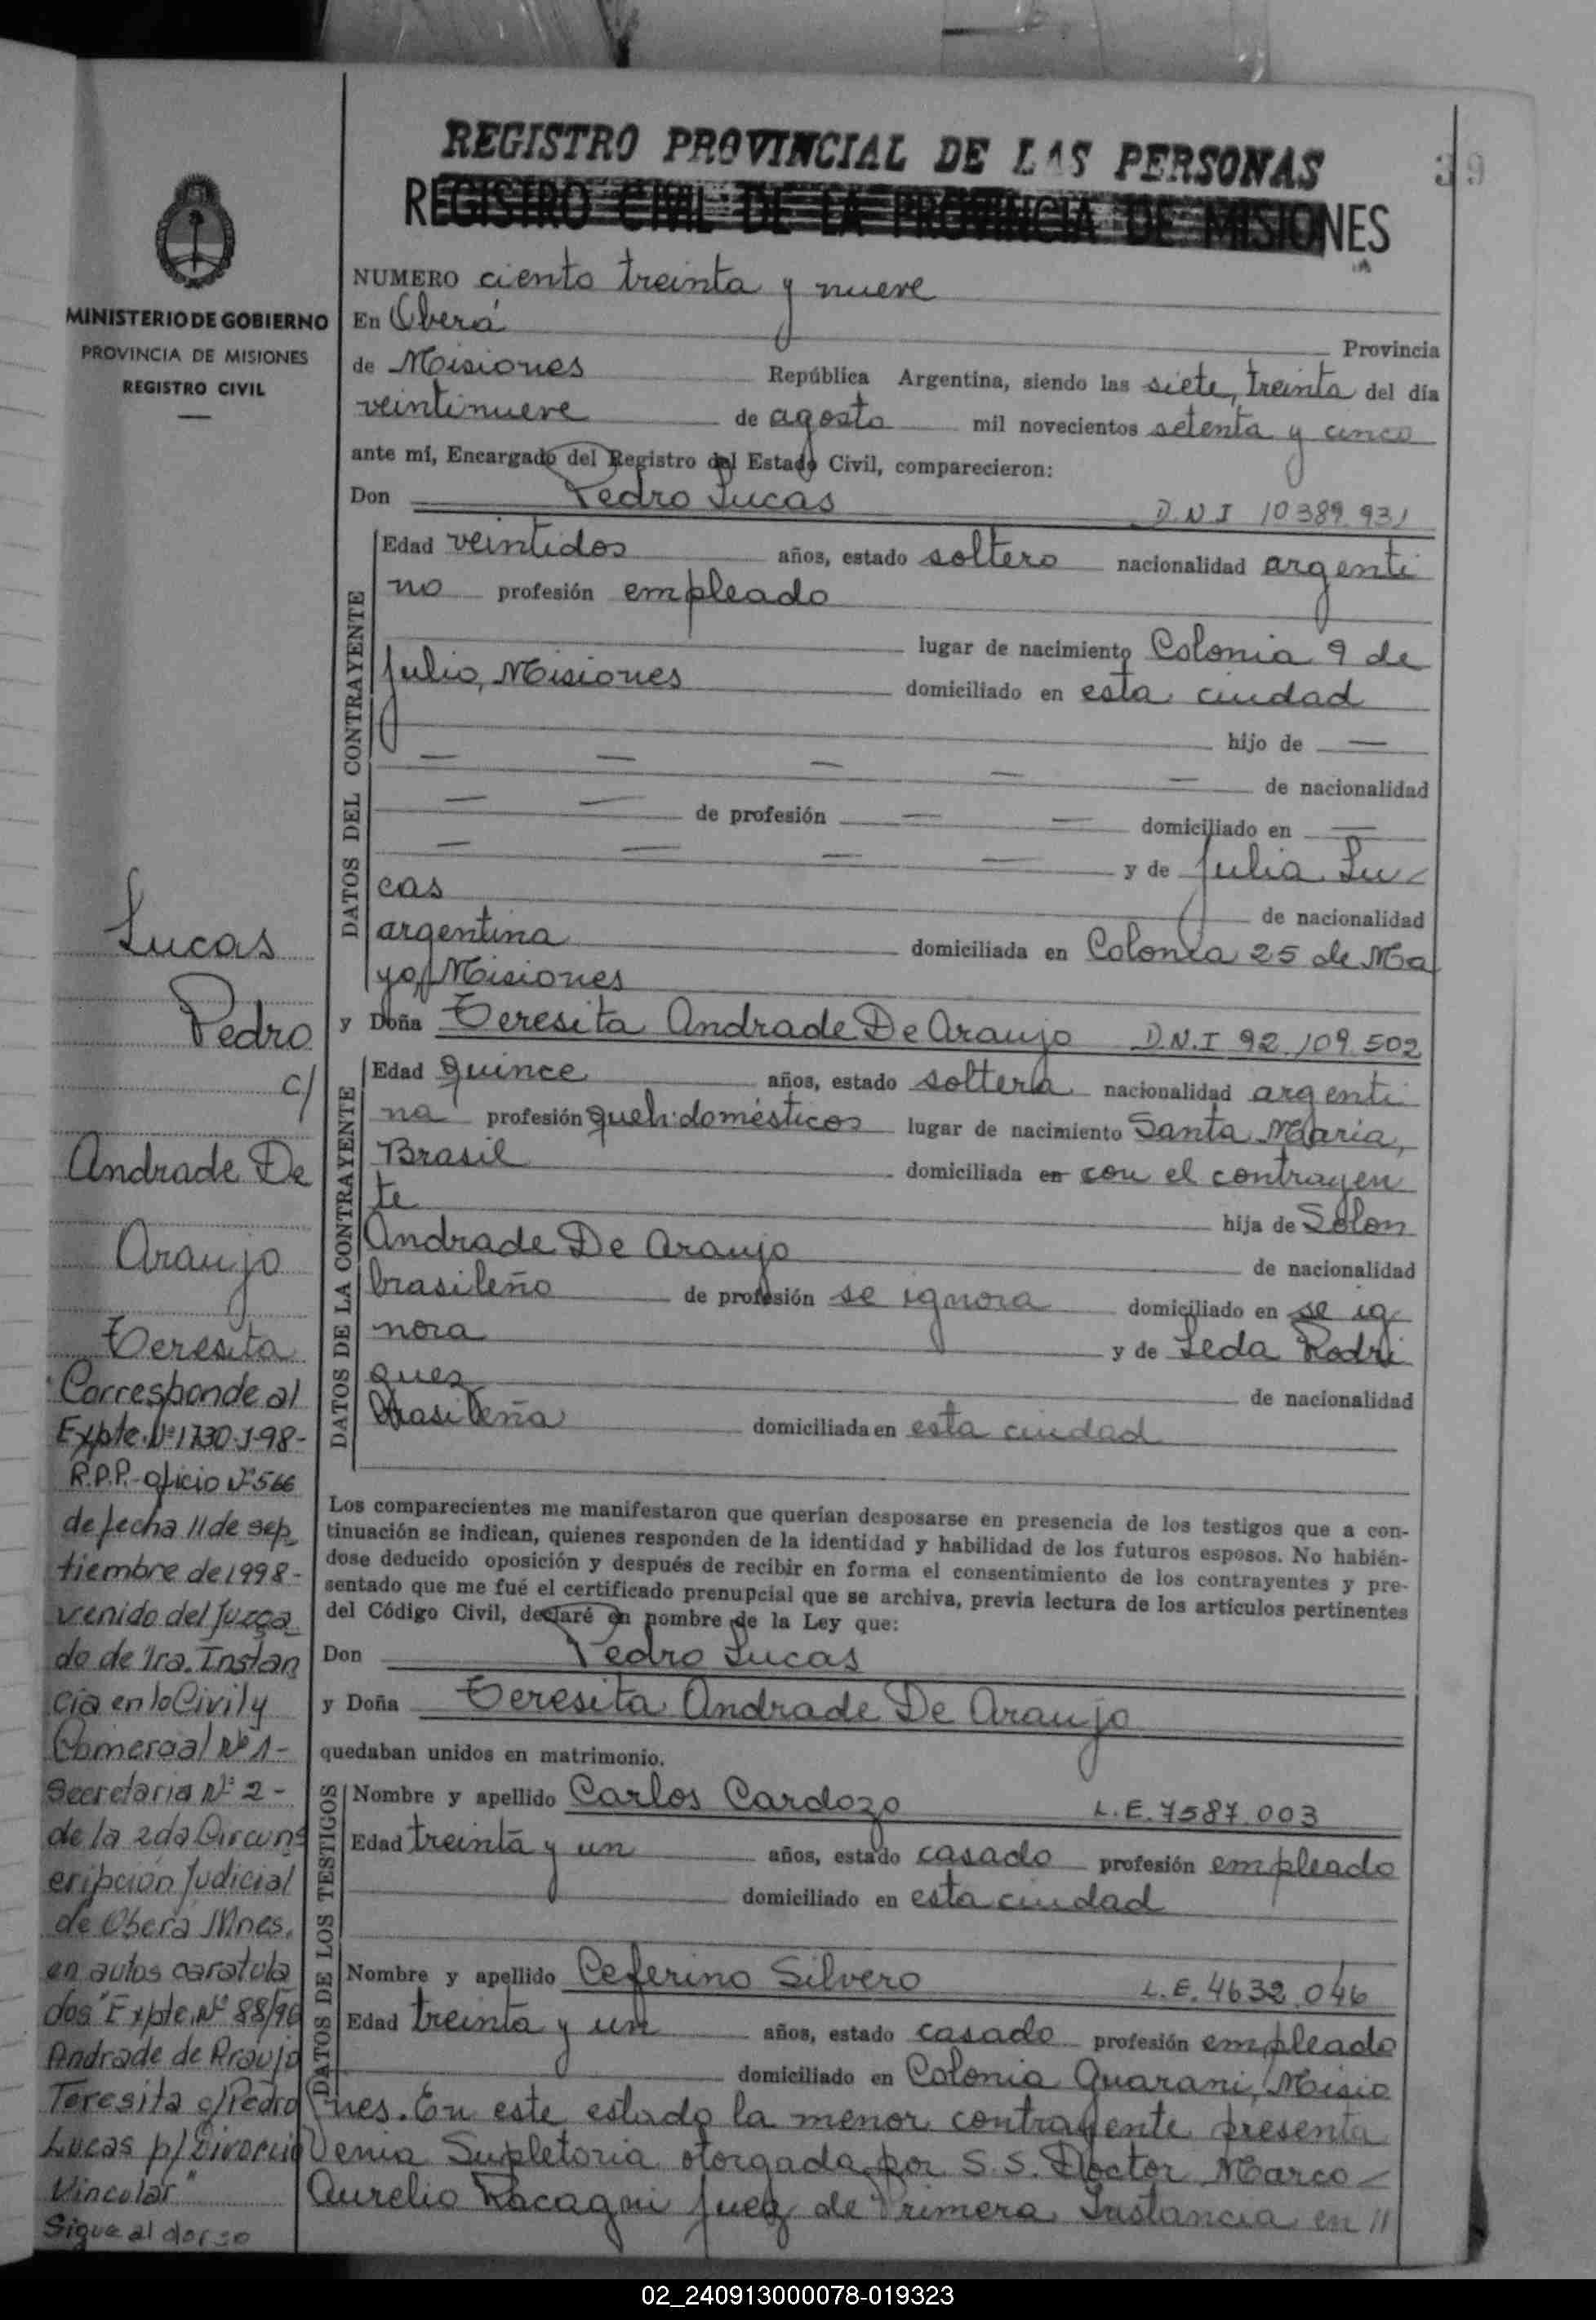 REGISTRO PROVINCIAL DE LAS PERSONAS
39
REGISTRO CIVIL DE LA PROVINCIA DE MISIONES
MINISTERIO DE GOBIERNO
PROVINCIA DE MISIONES
REGISTRO CIVIL
NUMERO ciento treinta y nueve
En Oberá Provincia
de Misiones República Argentina, siendo las siete, treinta del día
veintinueve de agosto mil novecientos setenta y cinco
ante mí, Encargado del Registro del Estado Civil, comparecieron:
Don Pedro Lucas D.N.I 10389.931
DATOS DEL CONTRAYENTE
Edad veintidos años, estado soltero nacionalidad argenti
no profesión empleado
lugar de nacimiento Colonia 9 de
Julio, Misiones domiciliado en esta ciudad
hijo de —
— — — — — de nacionalidad
— — de profesión — — domiciliado en —
— — — — y de Julia Lu-
cas de nacionalidad
argentina domiciliada en Colonia 25 de Ma
yo, Misiones
y Doña Teresita Andrade De Araujo D.N.I 92.109.502
DATOS DE LA CONTRAYENTE
Edad quince años, estado soltera nacionalidad argenti
na profesión queh. domésticos lugar de nacimiento Santa Maria,
Brasil domiciliada en con el contrayen
te hija de Solon
Andrade De Araujo de nacionalidad
brasileño de profesión se ignora domiciliado en se ig
nora y de Leda Rodri
guez de nacionalidad
brasileña domiciliada en esta ciudad
Los comparecientes me manifestaron que querían desposarse en presencia de los testigos que a con-
tinuación se indican, quienes responden de la identidad y habilidad de los futuros esposos. No habién-
dose deducido oposición y después de recibir en forma el consentimiento de los contrayentes y pre-
sentado que me fué el certificado prenupcial que se archiva, previa lectura de los artículos pertinentes
del Código Civil, declaré en nombre de la Ley que:
Don Pedro Lucas
y Doña Teresita Andrade De Araujo
quedaban unidos en matrimonio.
DATOS DE LOS TESTIGOS
Nombre y apellido Carlos Cardozo L.E. 7587.003
Edad treinta y un años, estado casado profesión empleado
domiciliado en esta ciudad
Nombre y apellido Ceferino Silvero L.E. 4632.046
Edad treinta y un años, estado casado profesión empleado
domiciliado en Colonia Guarani, Misio
nes. En este estado la menor contrayente presenta
Venia Supletoria otorgada por S.S. Doctor Marco-
Aurelio Racagni Juez de Primera Instancia en //
Lucas
Pedro
c/
Andrade De
Araujo
Teresita
Corresponde al
Expte. Nº 1730-J-98-
R.P.P.- oficio Nº 566
de fecha 11 de sep
tiembre de 1998-
venido del Juzga
do de 1ra. Instan
cia en lo Civil y
Comercial Nº 1-
Secretaria Nº 2-
de la 2da Circuns
cripción Judicial
de Oberá Mnes.
en autos caratula
dos "Expte. Nº 88/96
Andrade de Araujo
Teresita c/ Pedro
Lucas p/ Divorcio
Vincular"
Sigue al dorso
02_240913000078-019323